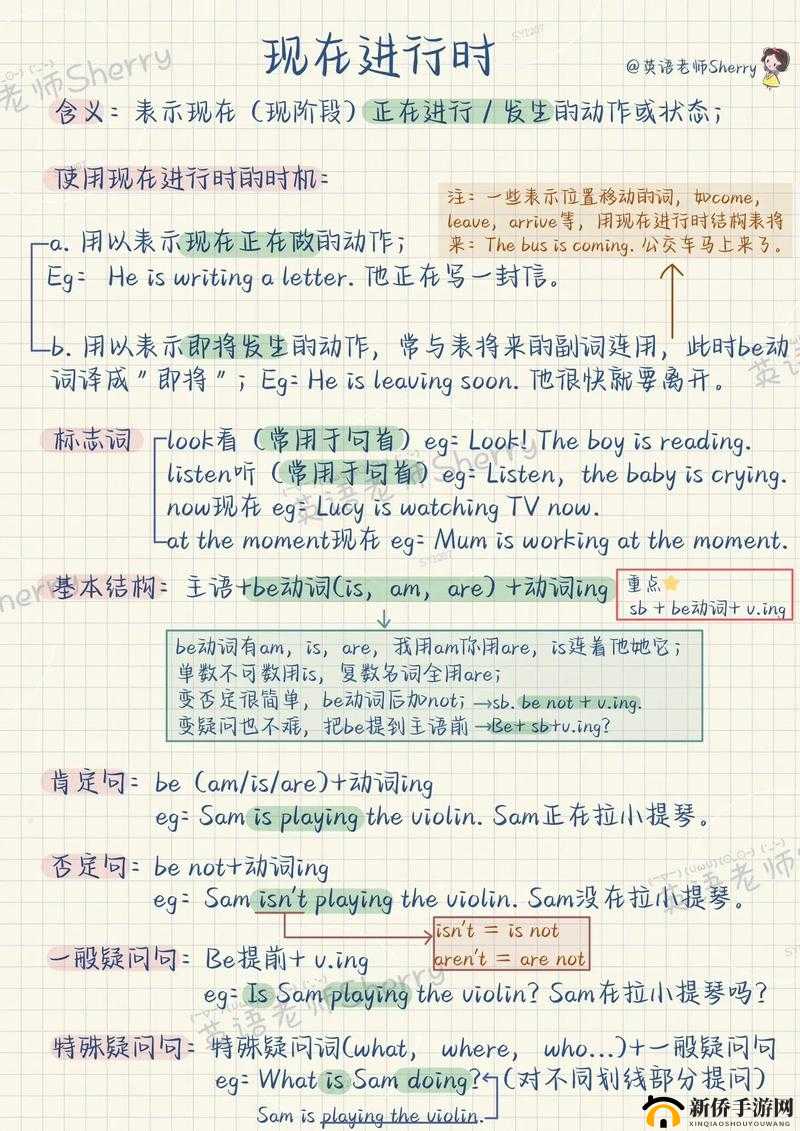 现在进行时
@英语老师Sherry
含义：表示现在（现阶段）正在进行/发生的动作或状态；
使用现在进行时的时机：
注：一些表示位置移动的词，如come，
leave，arrive等，用现在进行时结构表将
来：The bus is coming. 公交车马上来了。
a. 用以表示现在正在做的动作；
Eg： He is writing a letter. 他正在写一封信。
b. 用以表示即将发生的动作，常与表将来的副词连用，此时be动
词译成"即将"；Eg：He is leaving soon. 他很快就要离开。
标志词
look看（常用于句首）eg：Look! The boy is reading.
listen听（常用于句首）eg：Listen，the baby is crying.
now现在 eg：Lucy is watching TV now.
at the moment现在 eg：Mum is working at the moment.
基本结构：主语+be动词(is，am，are）+动词ing
重点
sb + be动词+ v.ing
be动词有am，is，are，我用am你用are，is连着他她它；
单数不可数用is，复数名词全用are；
变否定很简单，be动词后加not；→sb. be not + v.ing.
变疑问也不难，把be提到主语前→Be+ sb+v.ing?
肯定句：be（am/is/are)+动词ing
eg：Sam is playing the violin. Sam正在拉小提琴。
否定句：be not+动词ing
eg：Sam isn't playing the violin. Sam没在拉小提琴。
isn't = is not
aren't = are not
一般疑问句：Be提前+ v.ing
eg：Is Sam playing the violin? Sam在拉小提琴吗？
特殊疑问句：特殊疑问词(what， where， who...)+一般疑问句
eg：What is Sam doing?（对不同划线部分提问）
Sam is playing the violin.
新侨手游网
XINQIAOSHOUYOUWANG